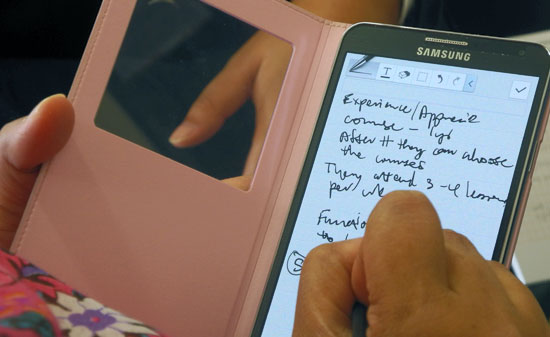 SAMSUNG
Experience/Apprecie
course – 1yr
After tt they can choose
the courses
They attend 3-4 lessons
per
Functio
to
S